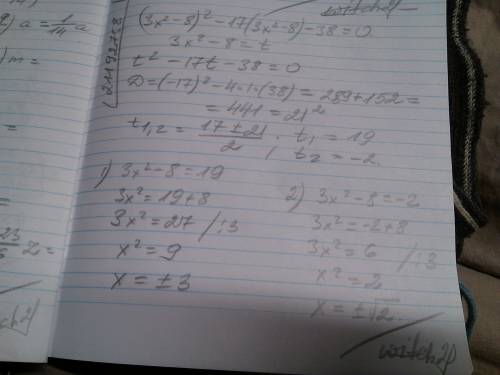 (3x²-8)²-17(3x²-8)-38=0
3x²-8=t
t²-17t-38=0
D=(-17)²-4·1·(38)=289+152=
=441=21²
t₁,₂=(17±21)/2; t₁=19
t₂=-2.
1) 3x²-8=19
3x²=19+8
3x²=27 /:3
x²=9
x=±3
2) 3x²-8=-2
3x²=-2+8
3x²=6 /:3
x²=2
x=±√2.
a=1/14 a
)m=
=
23
z=